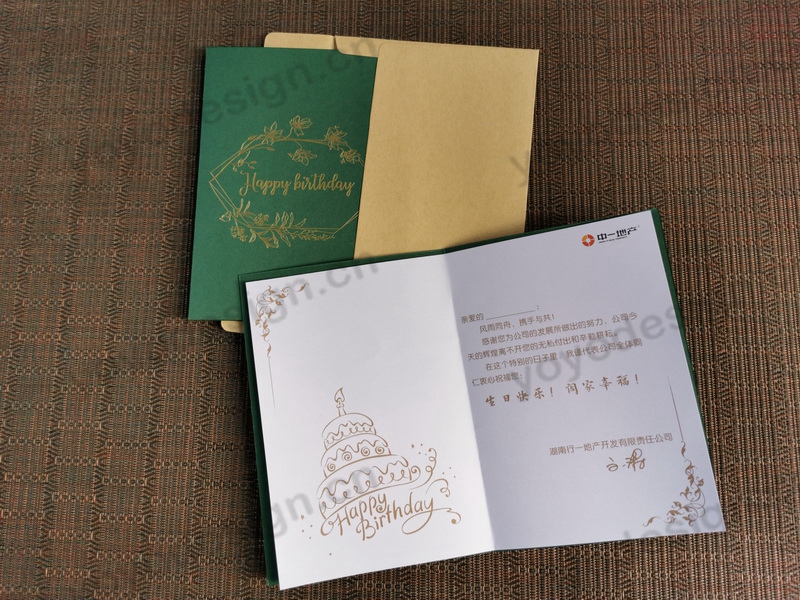 Happy birthday
中一地产
亲爱的 __________：
风雨同舟、携手与共！
感谢您为公司的发展所做出的努力，公司今
天的辉煌离不开您的无私付出和辛勤耕耘。
在这个特别的日子里，我谨代表公司全体同
仁衷心祝福您：
生日快乐！阖家幸福！
湖南中一地产开发有限责任公司
Happy
Birthday
yoyodesign.cn